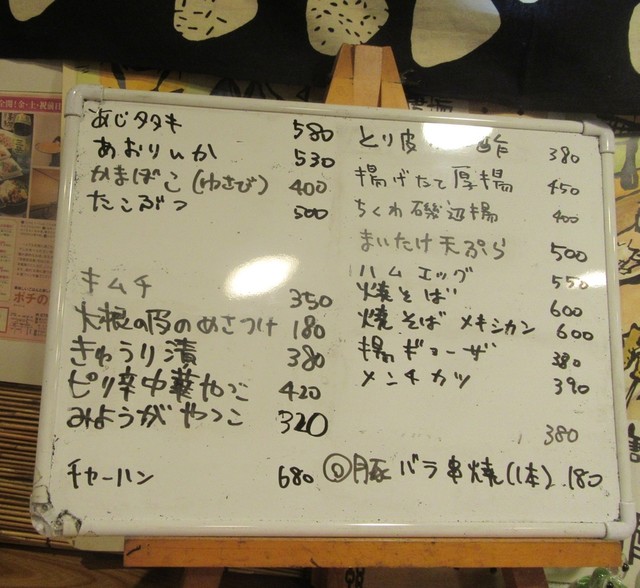 あじタタキ 580
あおりいか 530
かまぼこ(わさび) 400
たこぶつ 500
キムチ 350
大根の皮のあさつけ 180
きゅうり漬 380
ピリ辛中華やっこ 420
みょうがやっこ 320
チャーハン 680
とり皮 酢 380
揚げたて厚揚 450
ちくわ磯辺揚 400
まいたけ天ぷら 500
ハムエッグ 550
焼そば 600
焼そばメキシカン 600
揚ギョーザ 380
メンチカツ 390
380
豚バラ串焼(1本) 180